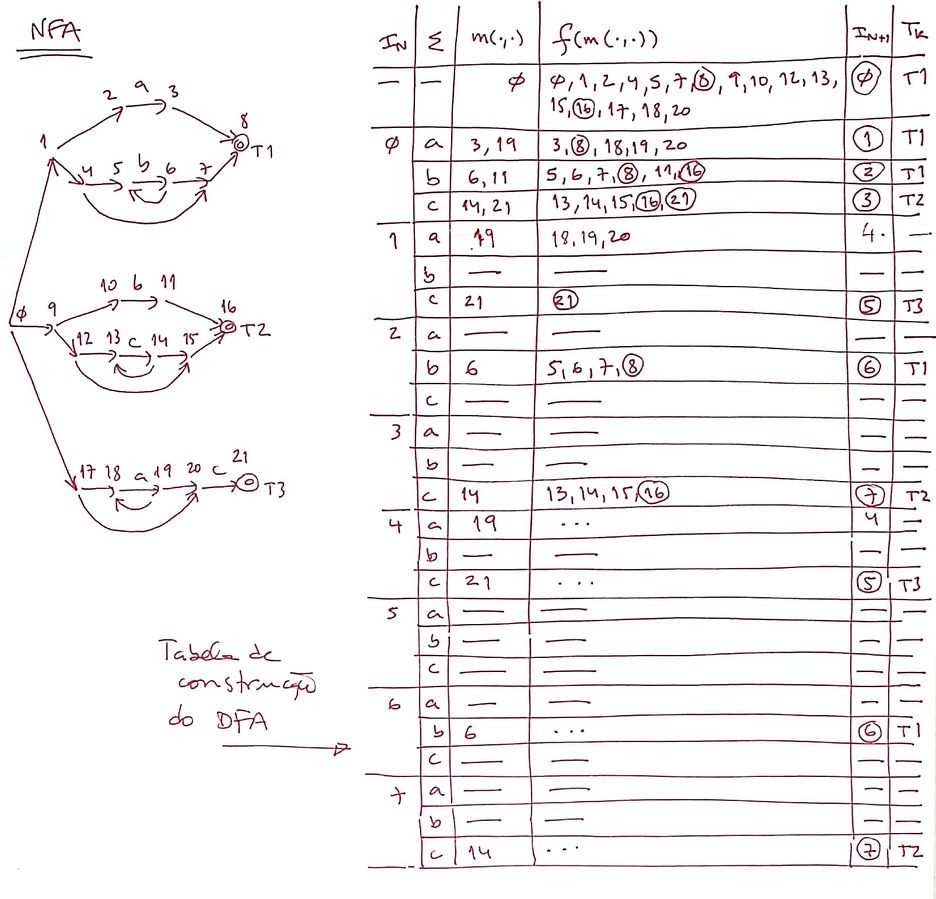 NFA
2 a 3
8
1
T1
4 5 b 6 7
10 b 11
16
∅ 9
T2
12 13 c 14 15
17 18 a 19 20 c 21
T3
Tabela de
construção
do DFA
I_N Σ m(·,·) f(m(·,·)) I_N+1 T_k
— — ∅ ∅, 1, 2, 4, 5, 7, 8, 9, 10, 12, 13, ∅ T1
15, 16, 17, 18, 20
∅ a 3, 19 3, 8, 18, 19, 20 1 T1
b 6, 11 5, 6, 7, 8, 11, 16 2 T1
c 14, 21 13, 14, 15, 16, 21 3 T2
1 a 19 18, 19, 20 4 —
b — — — —
c 21 21 5 T3
2 a — — — —
b 6 5, 6, 7, 8 6 T1
c — — — —
3 a — — — —
b — — — —
c 14 13, 14, 15, 16 7 T2
4 a 19 ... 4 —
b — — — —
c 21 ... 5 T3
5 a — — — —
b — — — —
c — — — —
6 a — — — —
b 6 ... 6 T1
c — — — —
7 a — — — —
b — — — —
c 14 ... 7 T2